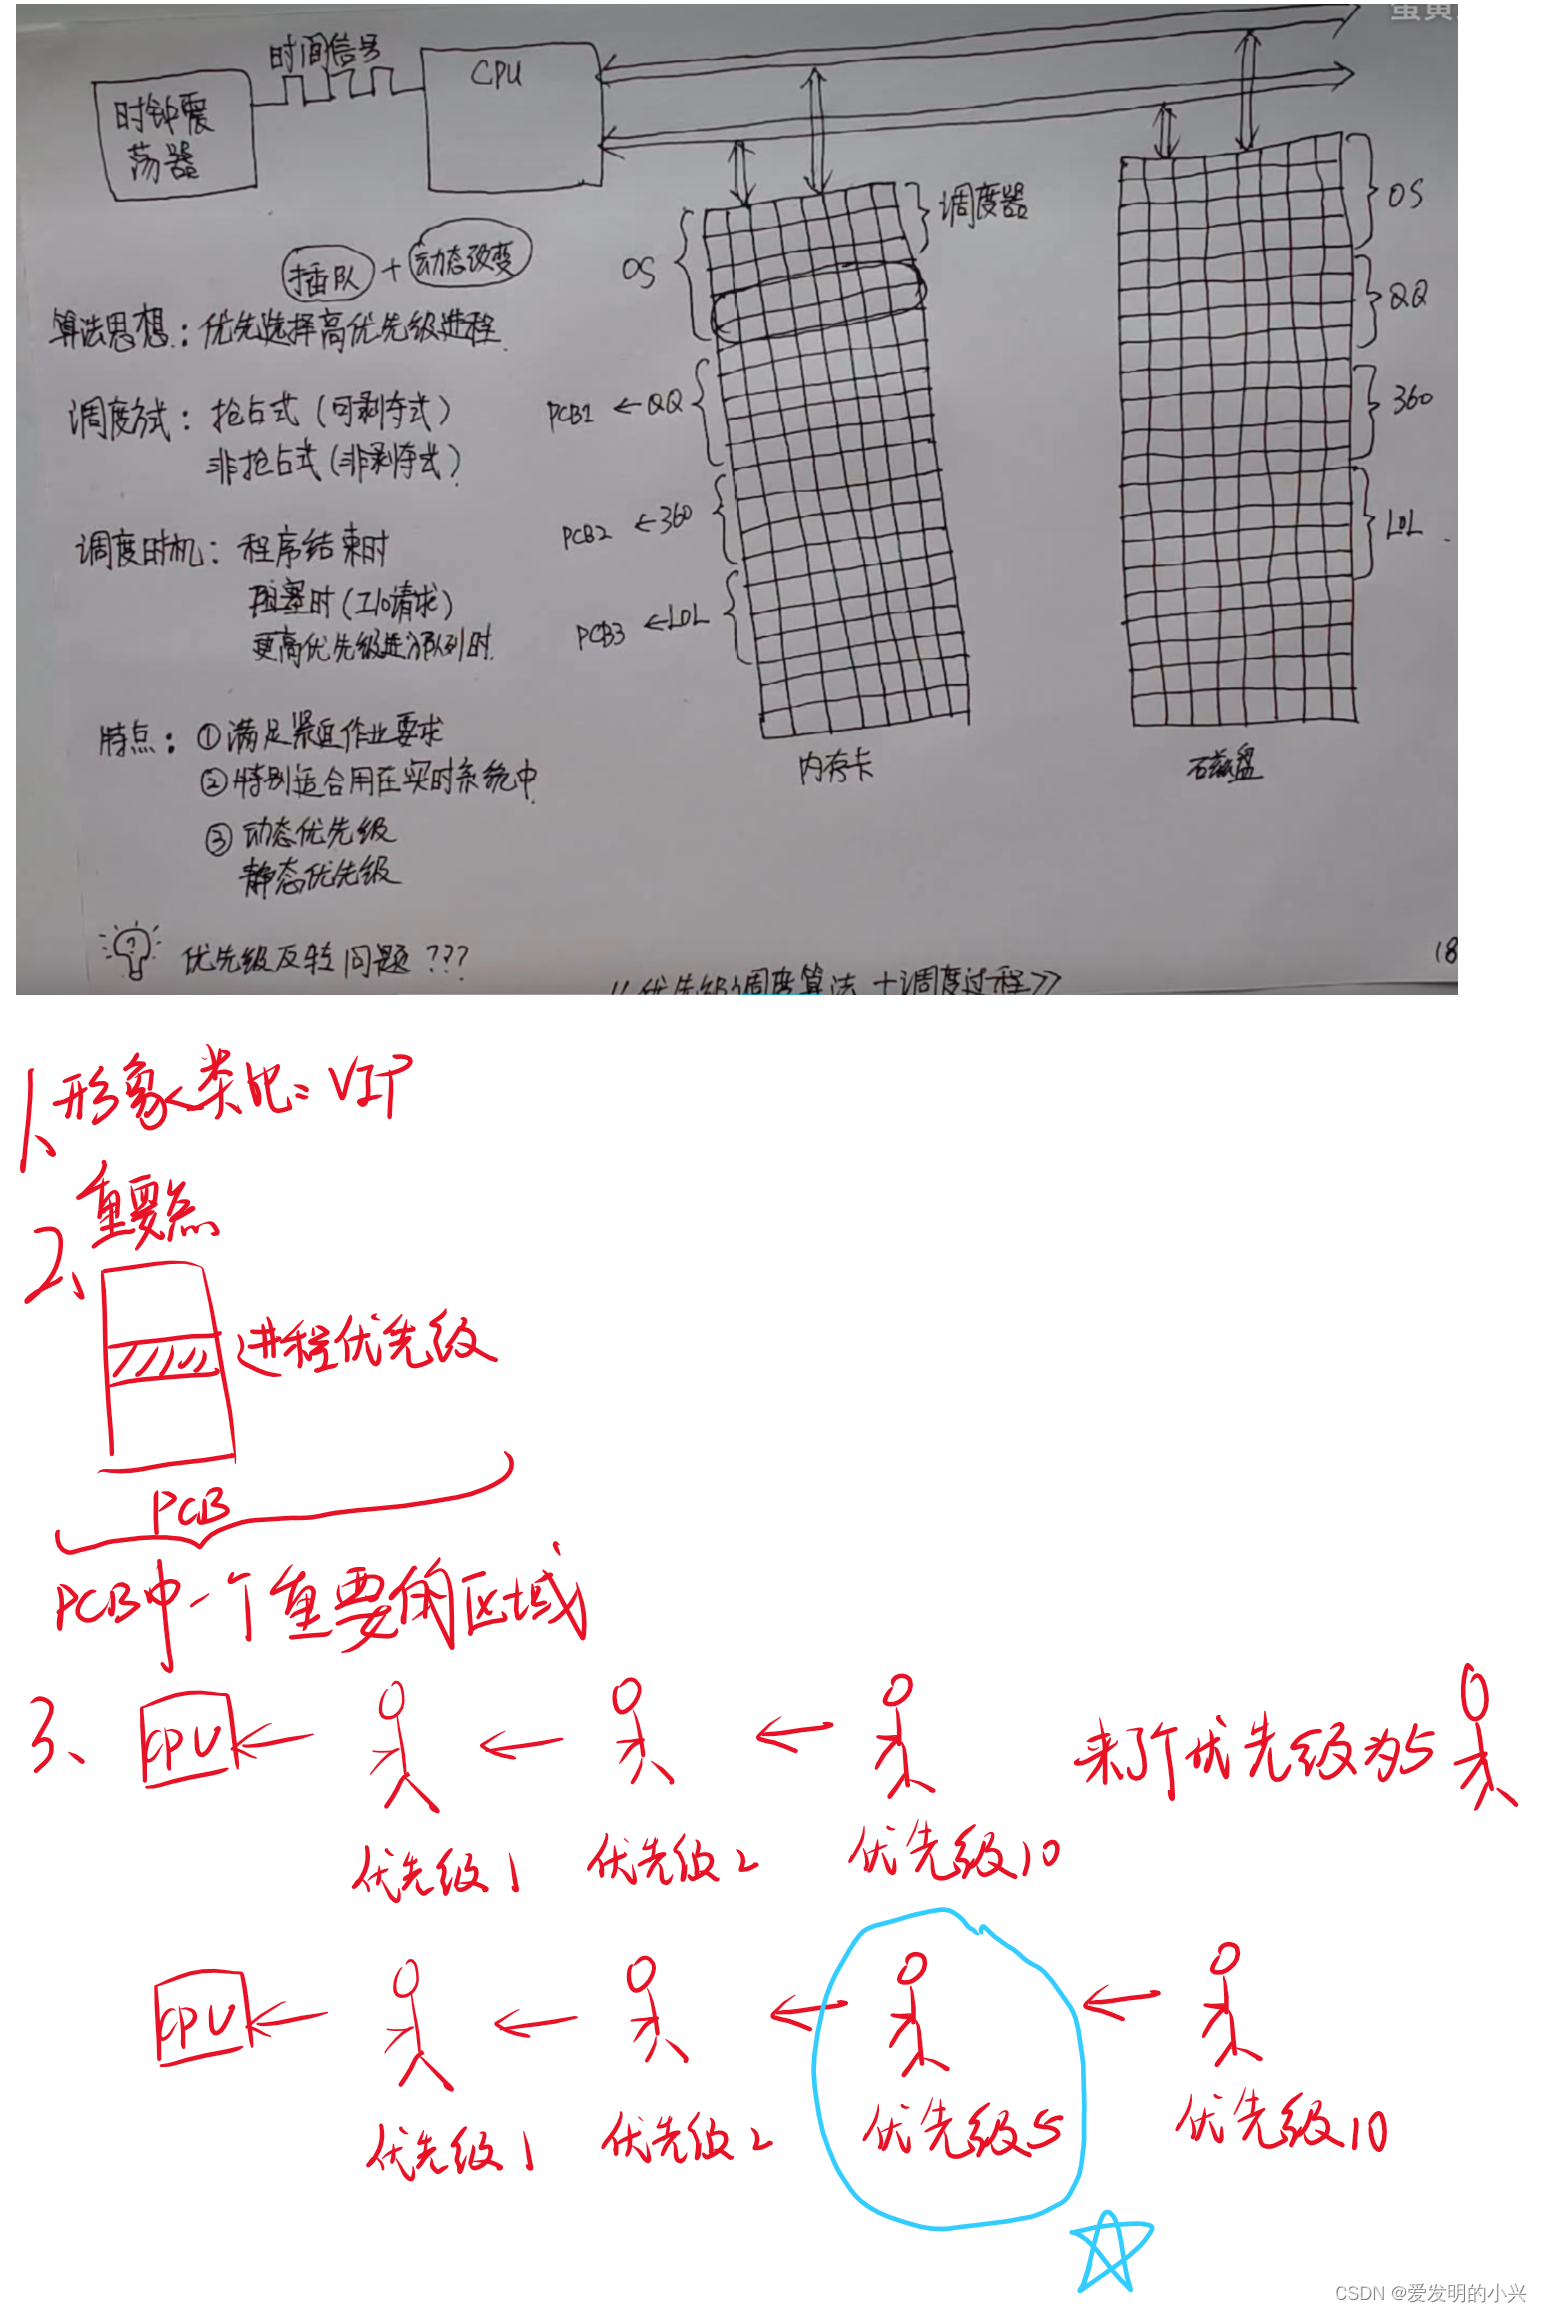 蛋黄
时间信号
时钟震
荡器
CPU
插队 + 动态改变
算法思想：优先选择高优先级进程
调度方式：抢占式（可剥夺式）
非抢占式（非剥夺式）
调度时机：程序结束时
阻塞时（I/O请求）
更高优先级进入队列时
特点：①满足紧迫作业要求
②特别适合用在实时系统中
③动态优先级
静态优先级
优先级反转问题???
OS
调度器
PCB1 ←QQ
PCB2 ←360
PCB3 ←LOL
内存卡
OS
QQ
360
LOL
磁盘
18
《优先级调度算法＋调度过程》
1、形象类比：VIP
2、重要点
进程优先级
PCB
PCB中一个重要的区域
3、CPU
来了个优先级为5
优先级1 优先级2 优先级10
CPU
优先级1 优先级2 优先级5 优先级10
CSDN @爱发明的小兴